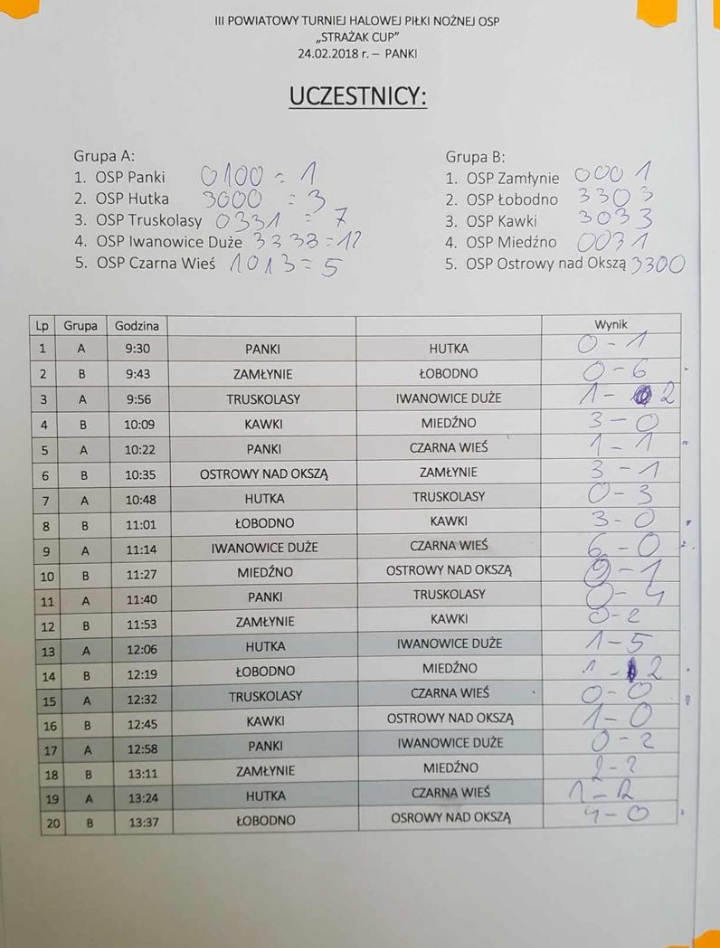 III POWIATOWY TURNIEJ HALOWEJ PIŁKI NOŻNEJ OSP
„STRAŻAK CUP”
24.02.2018 r. – PANKI
UCZESTNICY:
Grupa A:
1. OSP Panki 0100 = 1
2. OSP Hutka 3000 = 3
3. OSP Truskolasy 0331 = 7
4. OSP Iwanowice Duże 3333 = 12
5. OSP Czarna Wieś 1013 = 5
Grupa B:
1. OSP Zamłynie 0001
2. OSP Łobodno 3303
3. OSP Kawki 3033
4. OSP Miedźno 0031
5. OSP Ostrowy nad Okszą 3300
Lp Grupa Godzina Wynik
1 A 9:30 PANKI HUTKA 0-1
2 B 9:43 ZAMŁYNIE ŁOBODNO 0-6
3 A 9:56 TRUSKOLASY IWANOWICE DUŻE 1- 2
4 B 10:09 KAWKI MIEDŹNO 3-0
5 A 10:22 PANKI CZARNA WIEŚ 1-1
6 B 10:35 OSTROWY NAD OKSZĄ ZAMŁYNIE 3-1
7 A 10:48 HUTKA TRUSKOLASY 0-3
8 B 11:01 ŁOBODNO KAWKI 3-0
9 A 11:14 IWANOWICE DUŻE CZARNA WIEŚ 6-0
10 B 11:27 MIEDŹNO OSTROWY NAD OKSZĄ 0-1
11 A 11:40 PANKI TRUSKOLASY 0-4
12 B 11:53 ZAMŁYNIE KAWKI 0-2
13 A 12:06 HUTKA IWANOWICE DUŻE 1-5
14 B 12:19 ŁOBODNO MIEDŹNO 1- 2
15 A 12:32 TRUSKOLASY CZARNA WIEŚ 0-0
16 B 12:45 KAWKI OSTROWY NAD OKSZĄ 1-0
17 A 12:58 PANKI IWANOWICE DUŻE 0-2
18 B 13:11 ZAMŁYNIE MIEDŹNO 2-2
19 A 13:24 HUTKA CZARNA WIEŚ 1-2
20 B 13:37 ŁOBODNO OSROWY NAD OKSZĄ 4-0